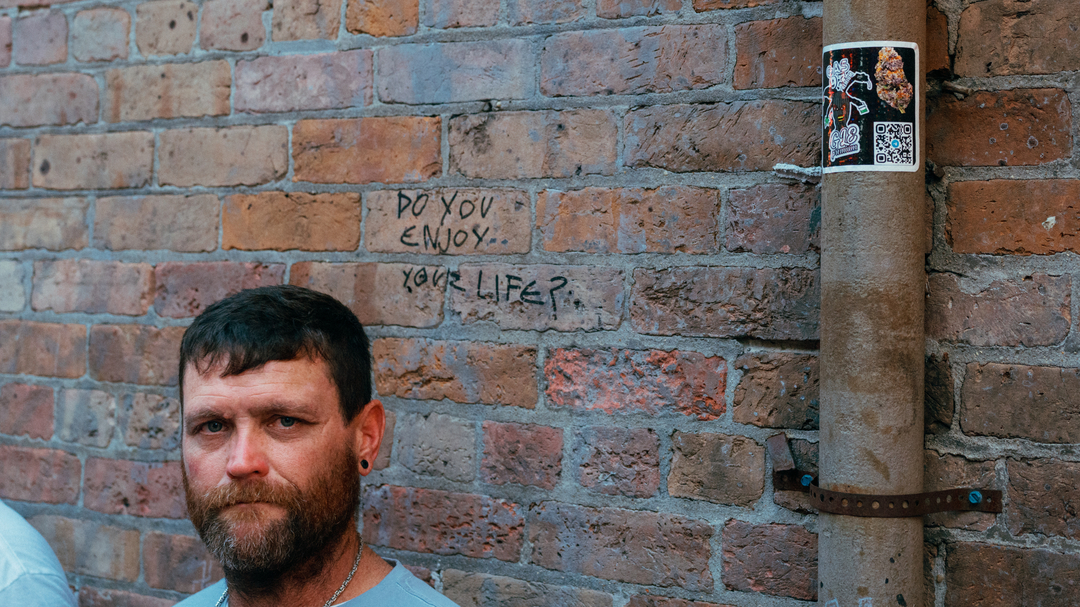 DO YOU
ENJOY..
YOUR LIFE?